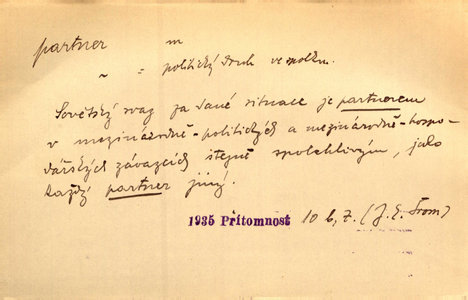 partner m
~ = politický druh ve spolku.
Sovětský svaz za dané situace je partnerem
v mezinárodně-politických a mezinárodně-hospo-
dářských závazcích stejně spolehlivým, jako
každý partner jiný.
1935 Přítomnost 10 b, 7. (J. E. Šrom)